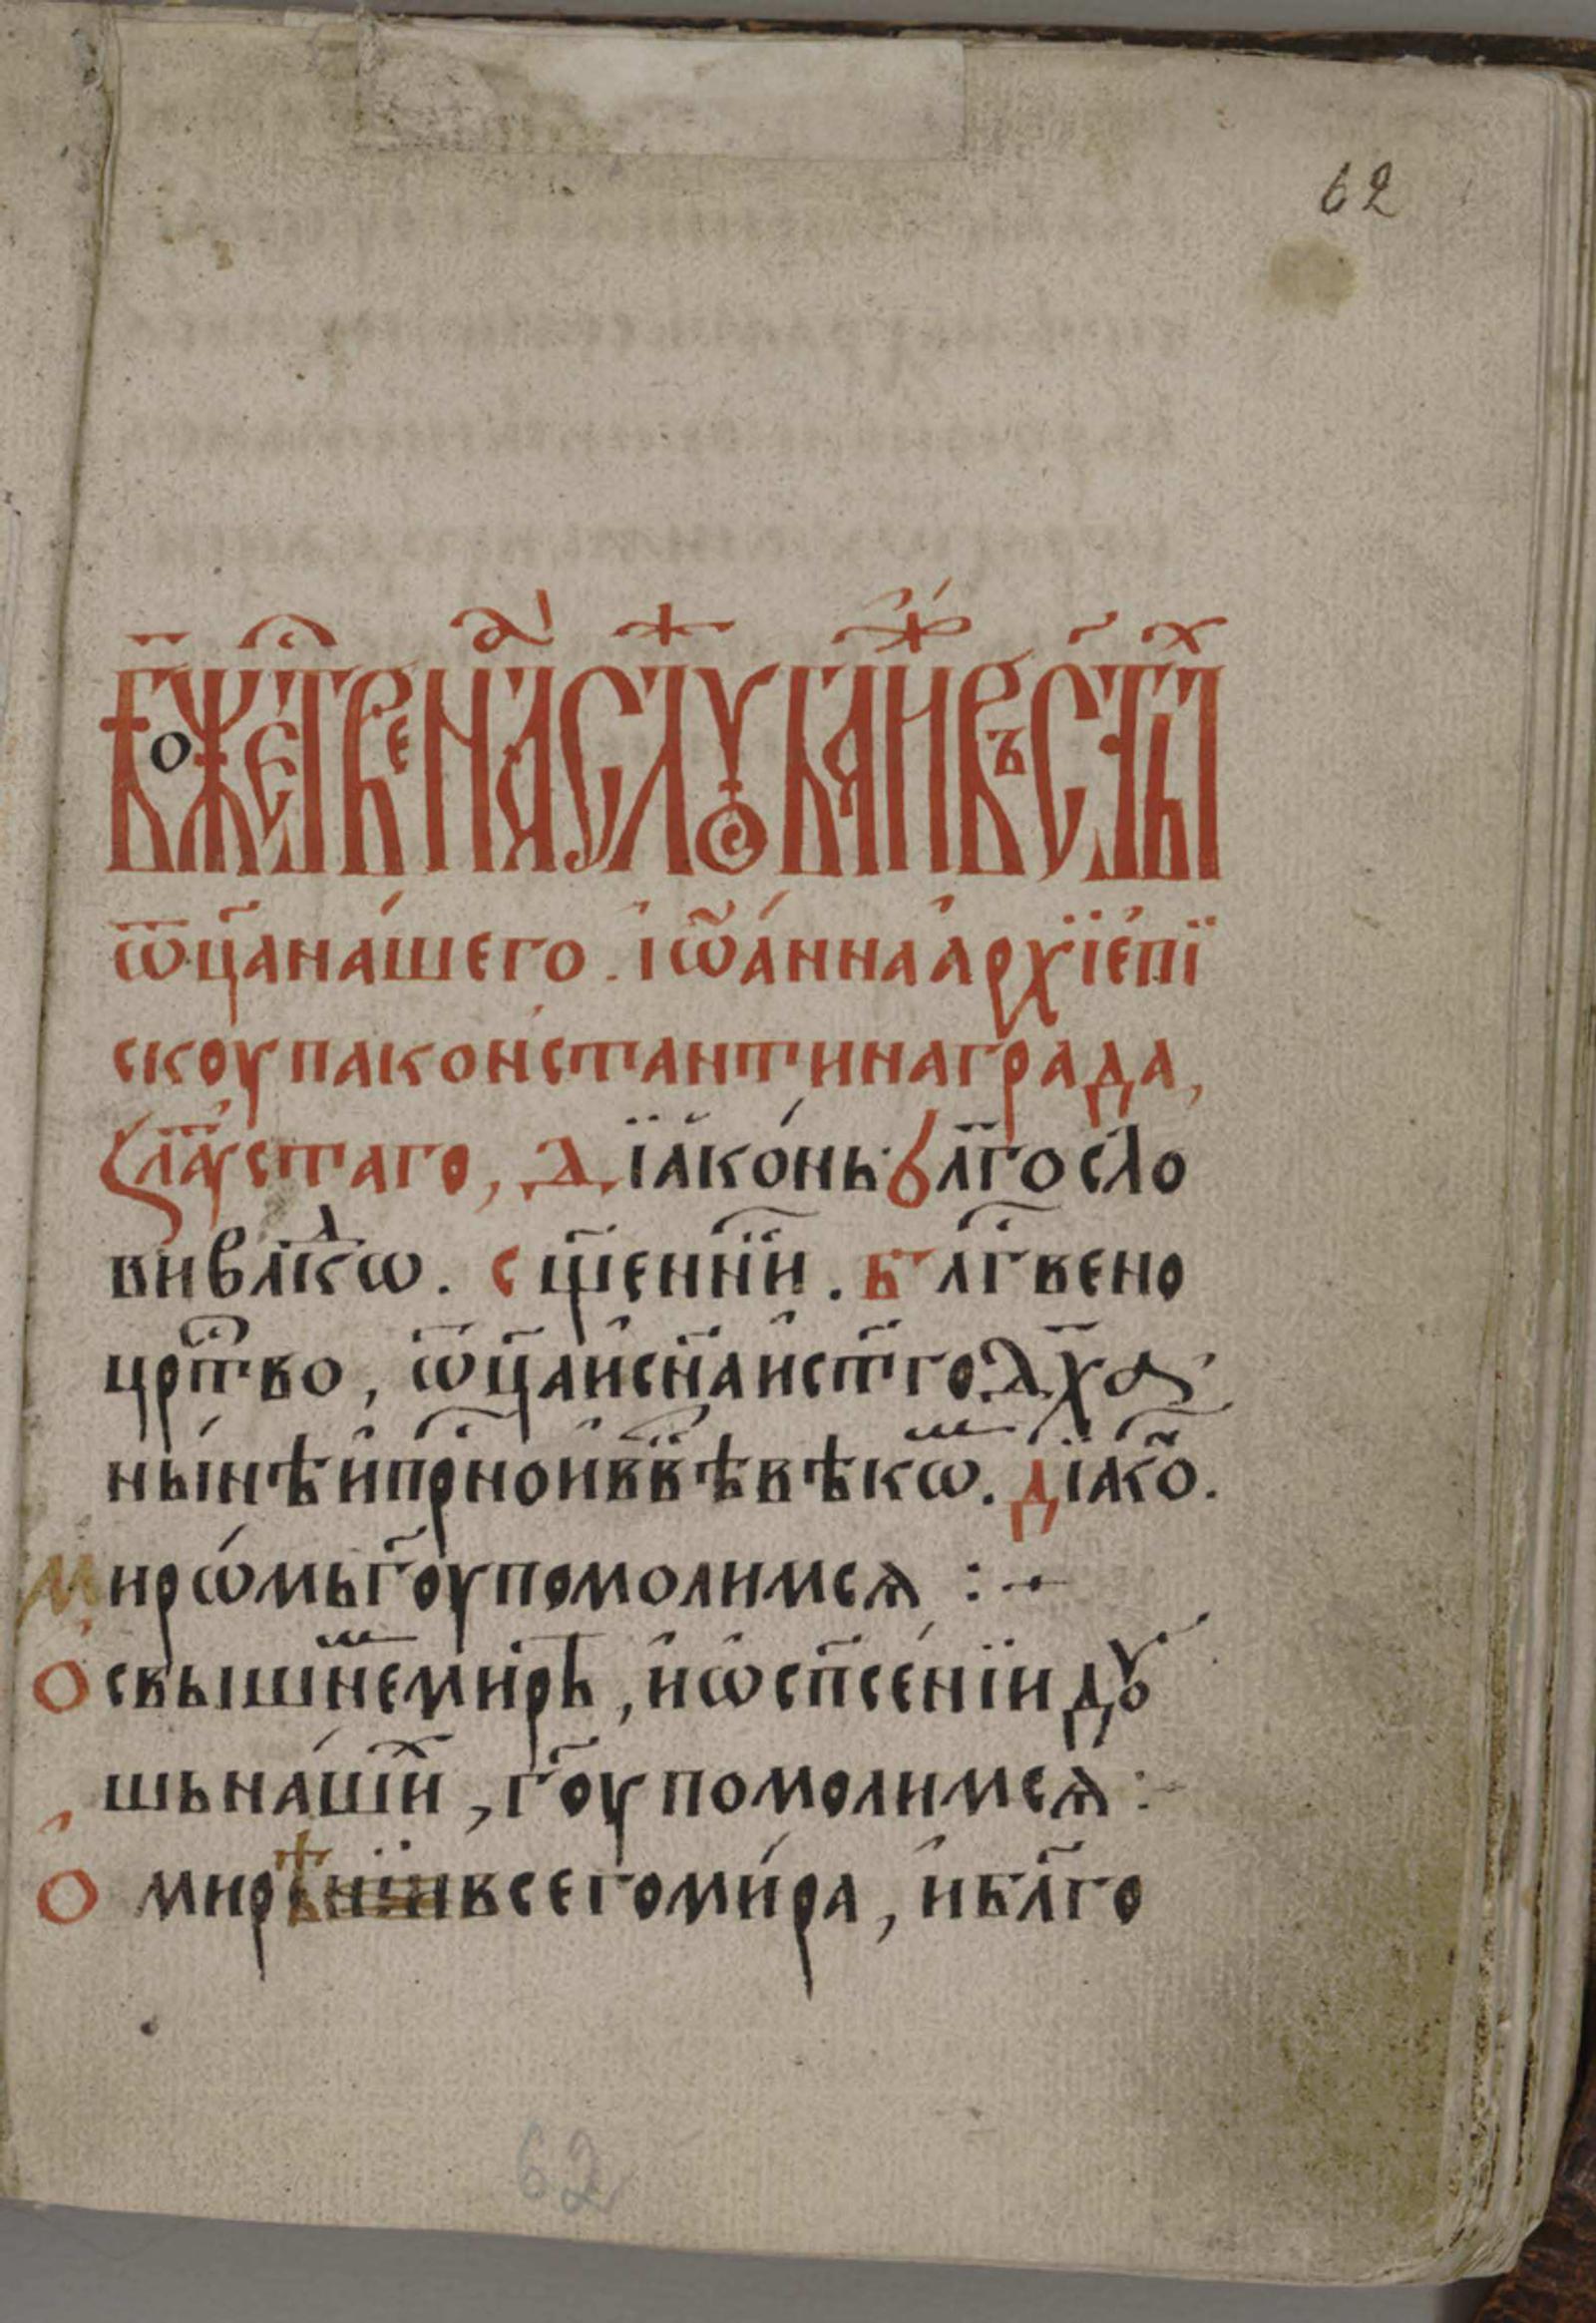 62
бж҃еⷭ҇твенаⷽ слꙋжⷠа иⷤ въ ст҃ыⷯ
ѿц҃а на́шего . і҆ѡ҃а́нна а҆рхїе҆пⷭ҇і
скоупа ко́нстантина града,
злаⷮ҇ꙋстаго, дїа҆ко́нь. бл҃госло
ви влⷣкѡ . сщ҃е́нный . бл҃гⷭ҇вено
црⷭ҇тво , ѿц҃а и҆ сн҃а и҆ ст҃го дх҃а
ны́нѣ и҆ прⷭ҇но и҆ в вѣ вѣкѡⷨ . дїа҆ко҃ .
мирѡ́мь гⷭ҇оу помолимсѧ :
ѻ҆ свышнеⷨ ми́рѣ , и҆ ѡ҆ сп҃се́нїи дꙋ
шь на́шиⷯ , гⷭ҇оу помолимсѧ :
ѻ҆ мирѣ всего ми́ра , и҆ бл҃го
62